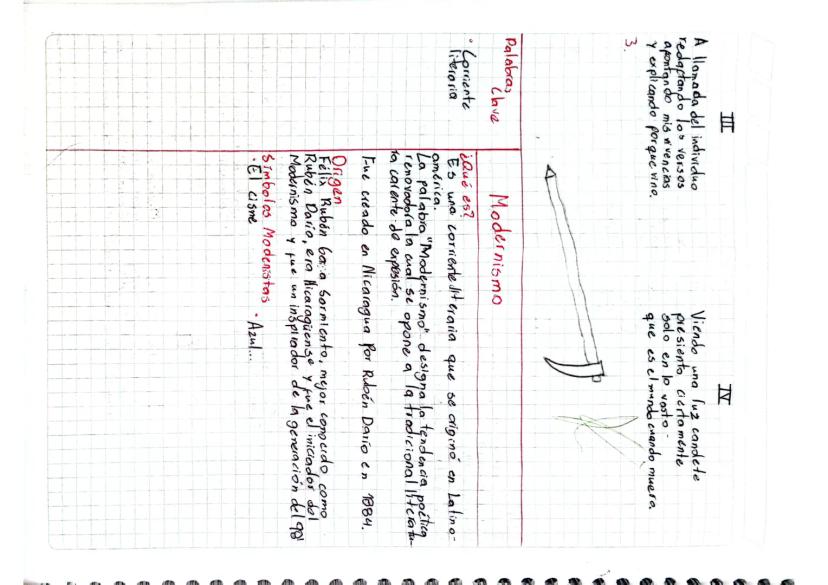 III
A llamada del individuo
redaptando los versos
aportando mis vivencias
y explicando porque vino.
3.
IV
Viendo una luz candete
presiento ciertamente
solo en lo vasto -
que es el mundo cuando muera.
Palabras
clave
· Corriente
literaria
Modernismo
¿Qué es?
Es una corriente literaria que se originó en Latino-
américa.
La palabra "Modernismo" designa la tendencia poética
renovadora la cual se opone a la tradicional literatu-
ra carente de expresión.
Fue creado en Nicaragua por Rubén Darío en 1884.
Origen
Félix Rubén García Sarmiento, mejor conocido como
Rubén Darío, era Nicaragüense y fue el iniciador del
Modernismo y fue un inspirador de la generación del 98'
Símbolos Modernistas
· El cisne
· Azul...